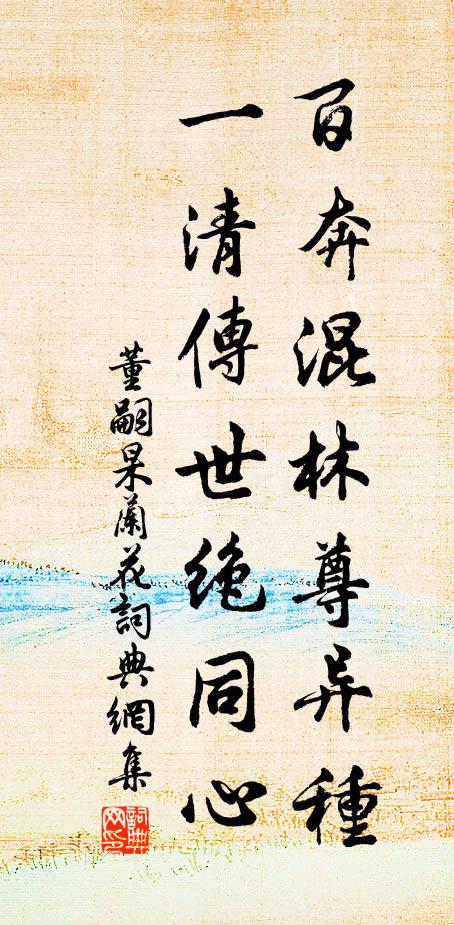 百奔混林尊异種
一清傳世絕同心
董嗣杲蘭花詞典網集
詞典網印